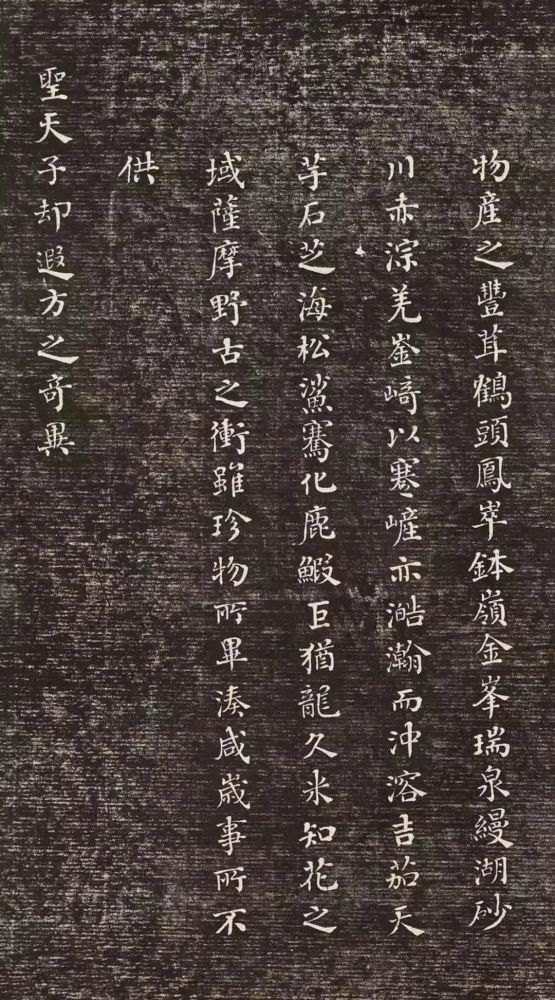 物産之豐茸鶴頭鳳崒鉢嶺金峯瑞泉縵湖砂
川赤淙羌崟崎以寋嵼亦澔瀚而沖溶吉茄天
芓石芝海松鯊騫化鹿鰕巨猶龍久米知花之
域薩摩野古之衝雖珍物所畢湊咸歲事所不
供
聖天子却遐方之奇異